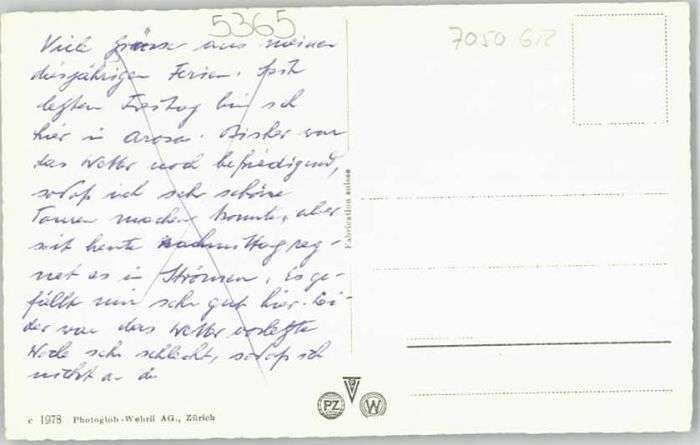 5365
7050 GR
Viele Grüsse aus meinen
diesjährigen Ferien. Seit
letzten Freitag bin ich
hier in Arosa. Bisher war
das Wetter noch befriedigend,
sodaß ich sehr schöne
Touren machen konnte, aber
seit heute nachmittag reg-
net es in Strömen. Es ge-
fällt mir sehr gut hier. Lei-
der war das Wetter vorletzte
Woche sehr schlecht, sodaß ich
nicht an die
Fabrication suisse
PZ
W
c 1978 Photoglob-Wehrli AG., Zürich